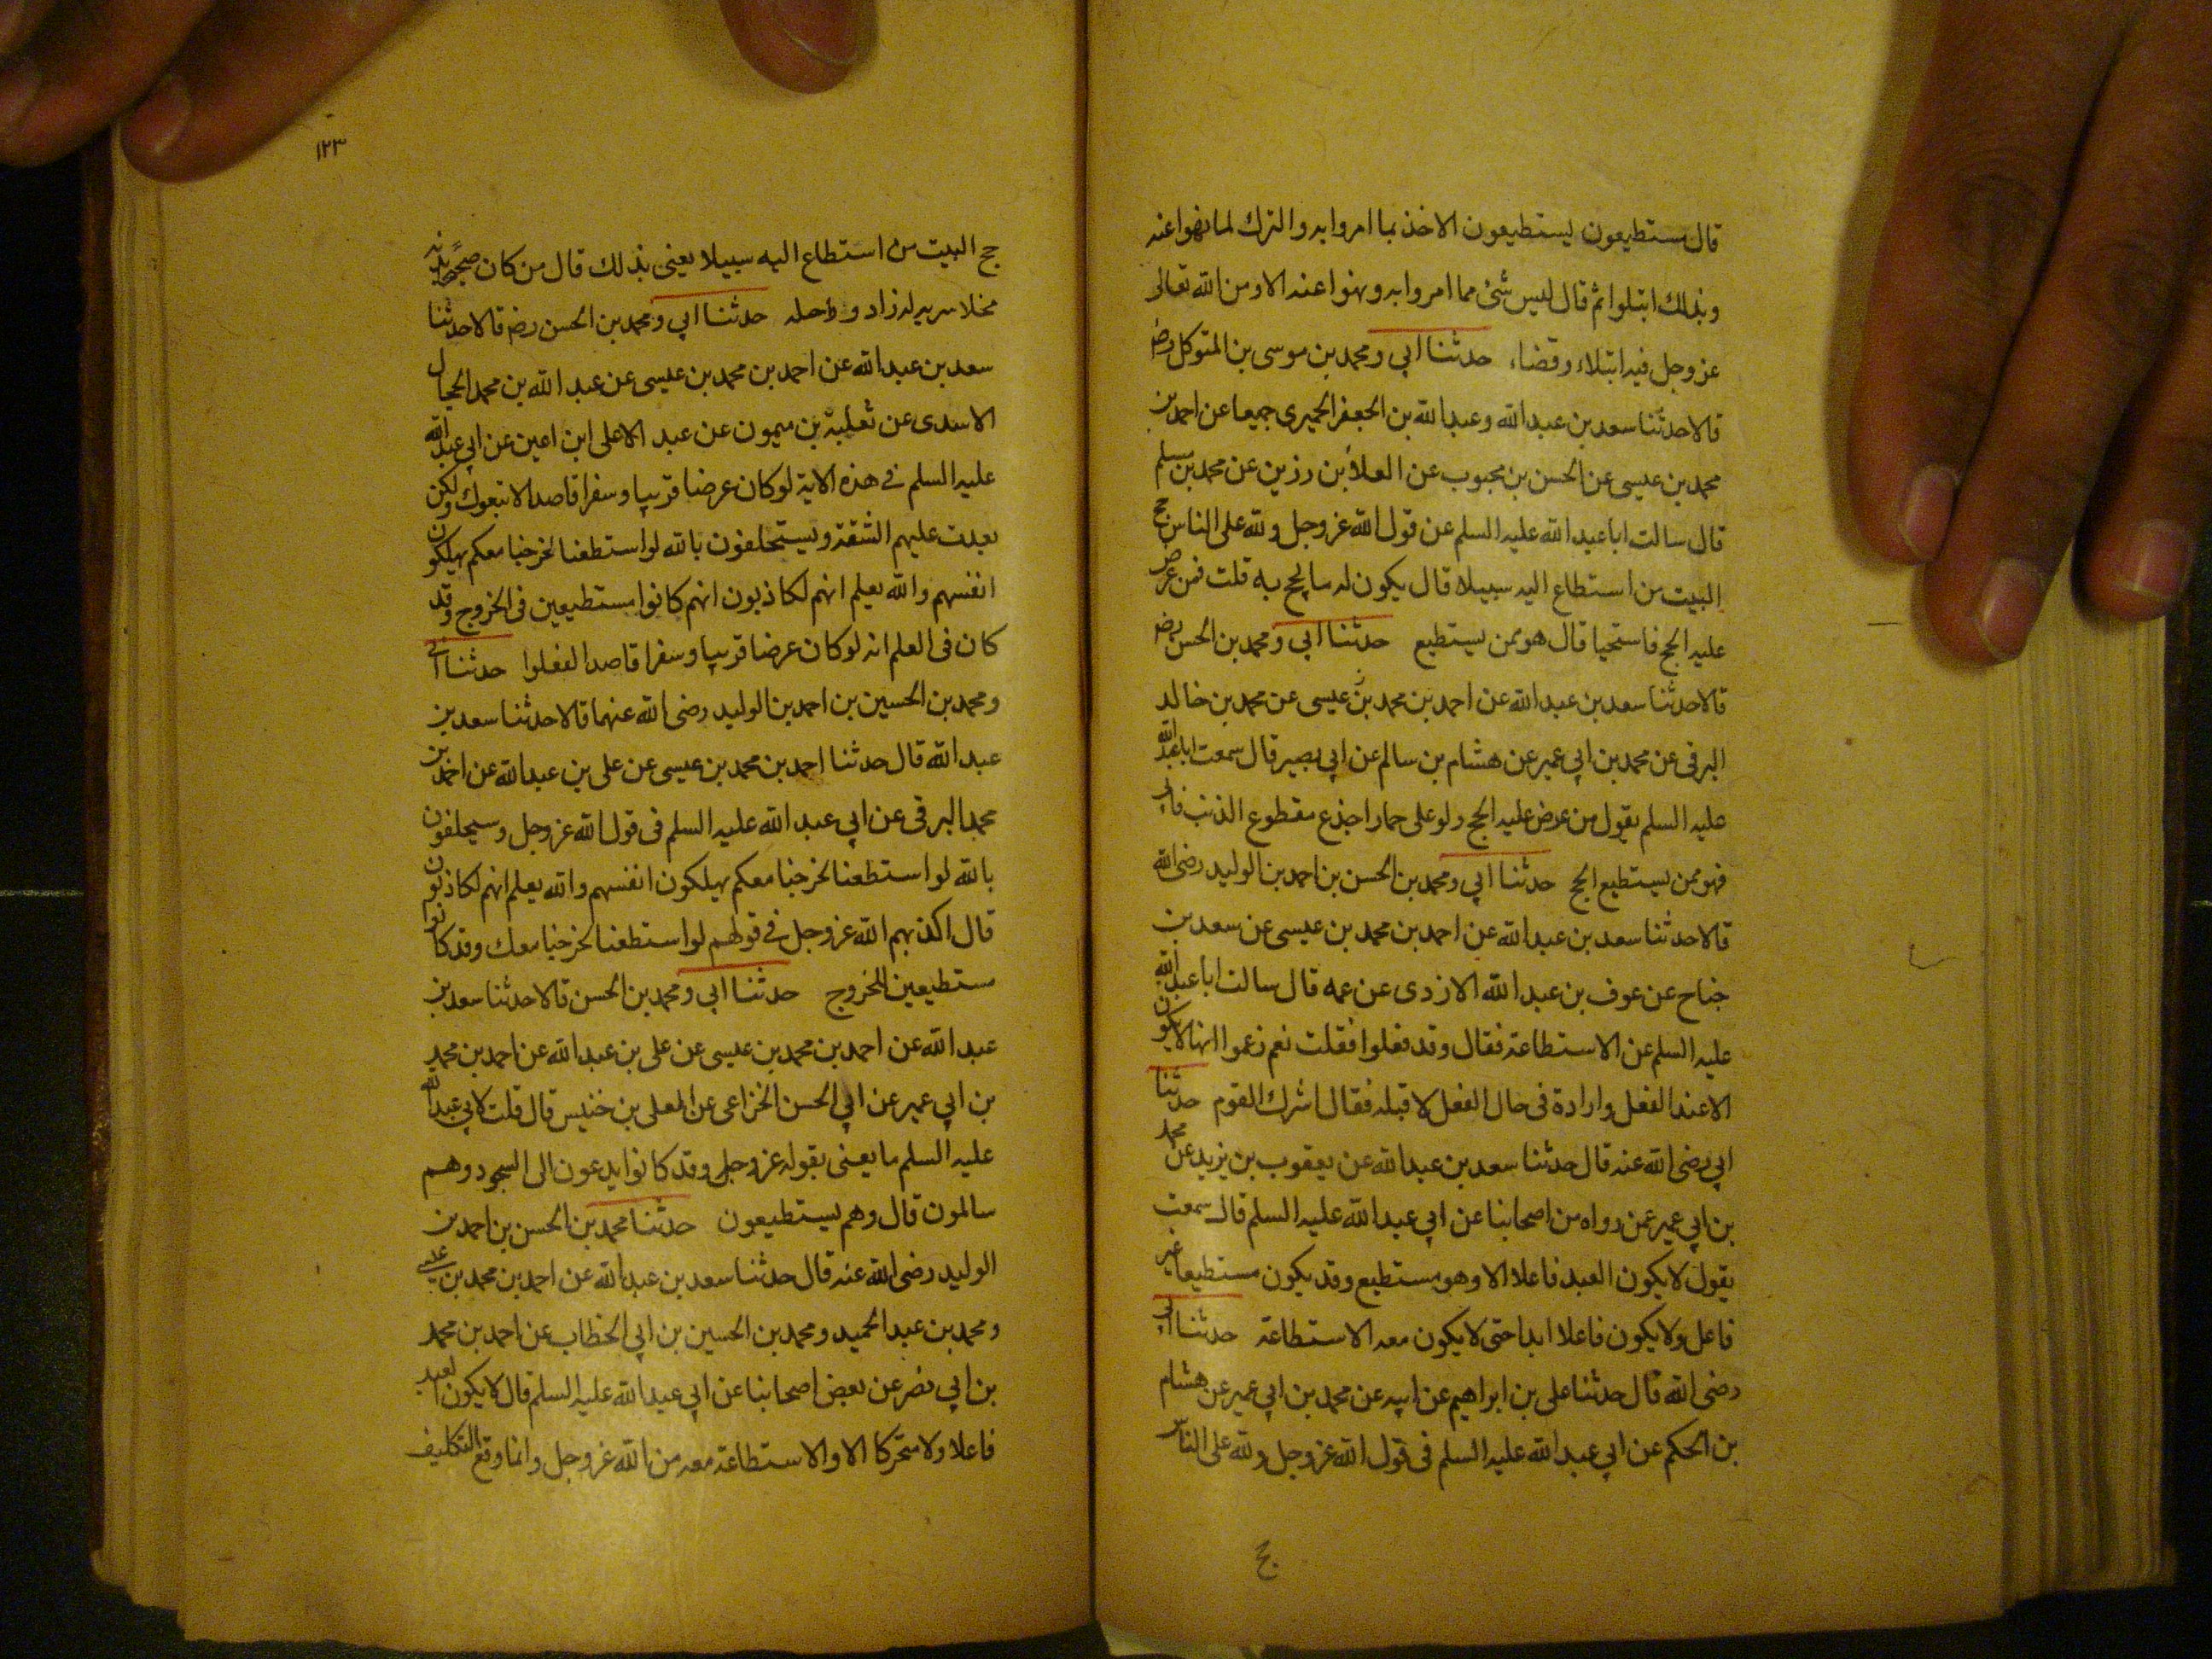 قال مستطيعون يستطيعون الاخذ بما امروا به والترك لما نهوا عنه
وبذلك ابتلوا ثم قال ليس شئ مما امروا به ونهوا عنه الا ومن الله تعالى
عز وجل فيه ابتلاء وقضاء حدثنا ابي ومحمد بن موسى بن المتوكل رض
قالا حدثنا سعد بن عبد الله وعبد الله بن الجعفر الحميرى جميعا عن احمد بن
محمد بن عيسى عن الحسن بن محبوب عن العلاء بن رزين عن محمد بن مسلم
قال سالت ابا عبد الله عليه السلم عن قول الله عز وجل ولله على الناس حج
البيت من استطاع اليه سبيلا قال يكون له ما يحج به قلت فمن عرض
عليه الحج فاستحيا قال هو ممن يستطيع حدثنا ابي ومحمد بن الحسن رض
قالا حدثنا سعد بن عبد الله عن احمد بن محمد بن عيسى عن محمد بن خالد
البرقى عن محمد بن ابي عمير عن هشام بن سالم عن ابي بصير قال سمعت ابا عبد الله
عليه السلم يقول من عرض عليه الحج ولو على حمار اجذع مقطوع الذنب فابى
فهو ممن يستطيع الحج حدثنا ابي ومحمد بن الحسن بن احمد بن الوليد رضى الله
قالا حدثنا سعد بن عبد الله عن احمد بن محمد بن عيسى عن سعد بن
جناح عن عوف بن عبد الله الازدى عن عمه قال سالت ابا عبد الله
عليه السلم عن الاستطاعة فقال وقد فعلوا فقلت نعم زعموا انها لا يكون
الا عند الفعل وارادة فى حال الفعل لا قبله فقال اشرك القوم حدثنا
ابي رضى الله عنه قال حدثنا سعد بن عبد الله عن يعقوب بن يزيد عن محمد
بن ابي عمير عمن رواه من اصحابنا عن ابي عبد الله عليه السلم قال سمعت
يقول لا يكون العبد فاعلا الا وهو مستطيع وقد يكون مستطيعا غير
فاعل ولا يكون فاعلا ابدا حتى لا يكون معه الاستطاعة حدثنا ابي
رضى الله قال حدثنا على بن ابراهيم عن ابيه عن محمد بن ابي عمير عن هشام
بن الحكم عن ابي عبد الله عليه السلم فى قول الله عز وجل ولله على الناس
حج
١٢٣
حج البيت من استطاع اليه سبيلا يعنى بذلك قال من كان صحيحا بدنه
مخلا سربه له زاد وراحله حدثنا ابي ومحمد بن الحسن رض قالا حدثنا
سعد بن عبد الله عن احمد بن محمد بن عيسى عن عبد الله بن محمد الحجال
الاسدى عن ثعلبة بن ميمون عن عبد الاعلى ابن اعين عن ابي عبد الله
عليه السلم فى هذه الاية لو كان عرضا قريبا وسفرا قاصدا لاتبعوك ولكن
بعدت عليهم الشقة ويستحلفون بالله لو استطعنا لخرجنا معكم يهلكون
انفسهم والله يعلم انهم لكاذبون انهم كانوا مستطيعين فى الخروج وقد
كان فى العلم انه لو كان عرضا قريبا وسفرا قاصدا لفعلوا حدثنا ابي
ومحمد بن الحسين بن احمد بن الوليد رضى الله عنهما قالا حدثنا سعد بن
عبد الله قال حدثنا احمد بن محمد بن عيسى عن على بن عبد الله عن احمد بن
محمد البرقى عن ابي عبد الله عليه السلم فى قول الله عز وجل وسيحلفون
بالله لو استطعنا لخرجنا معكم يهلكون انفسهم والله يعلم انهم لكاذبون
قال اكذبهم الله عز وجل فى قولهم لو استطعنا لخرجنا معك وقد كانوا
مستطيعين للخروج حدثنا ابي ومحمد بن الحسن قالا حدثنا سعد بن
عبد الله عن احمد بن محمد بن عيسى عن على بن عبد الله عن احمد بن محمد
بن ابي عمير عن ابي الحسن الخزاعى عن المعلى بن خنيس قال قلت لابي عبد الله
عليه السلم ما يعنى بقوله عز وجل وقد كانوا يدعون الى السجود وهم
سالمون قال وهم يستطيعون حدثنا محمد بن الحسن بن احمد بن
الوليد رضى الله عنه قال حدثنا سعد بن عبد الله عن احمد بن محمد بن عيسى
ومحمد بن عبد الحميد ومحمد بن الحسين بن ابي الخطاب عن احمد بن محمد
بن ابي نصر عن بعض اصحابنا عن ابي عبد الله عليه السلم قال لا يكون العبد
فاعلا ولا متحركا الا والاستطاعة معه من الله عز وجل وانما وقع التكليف